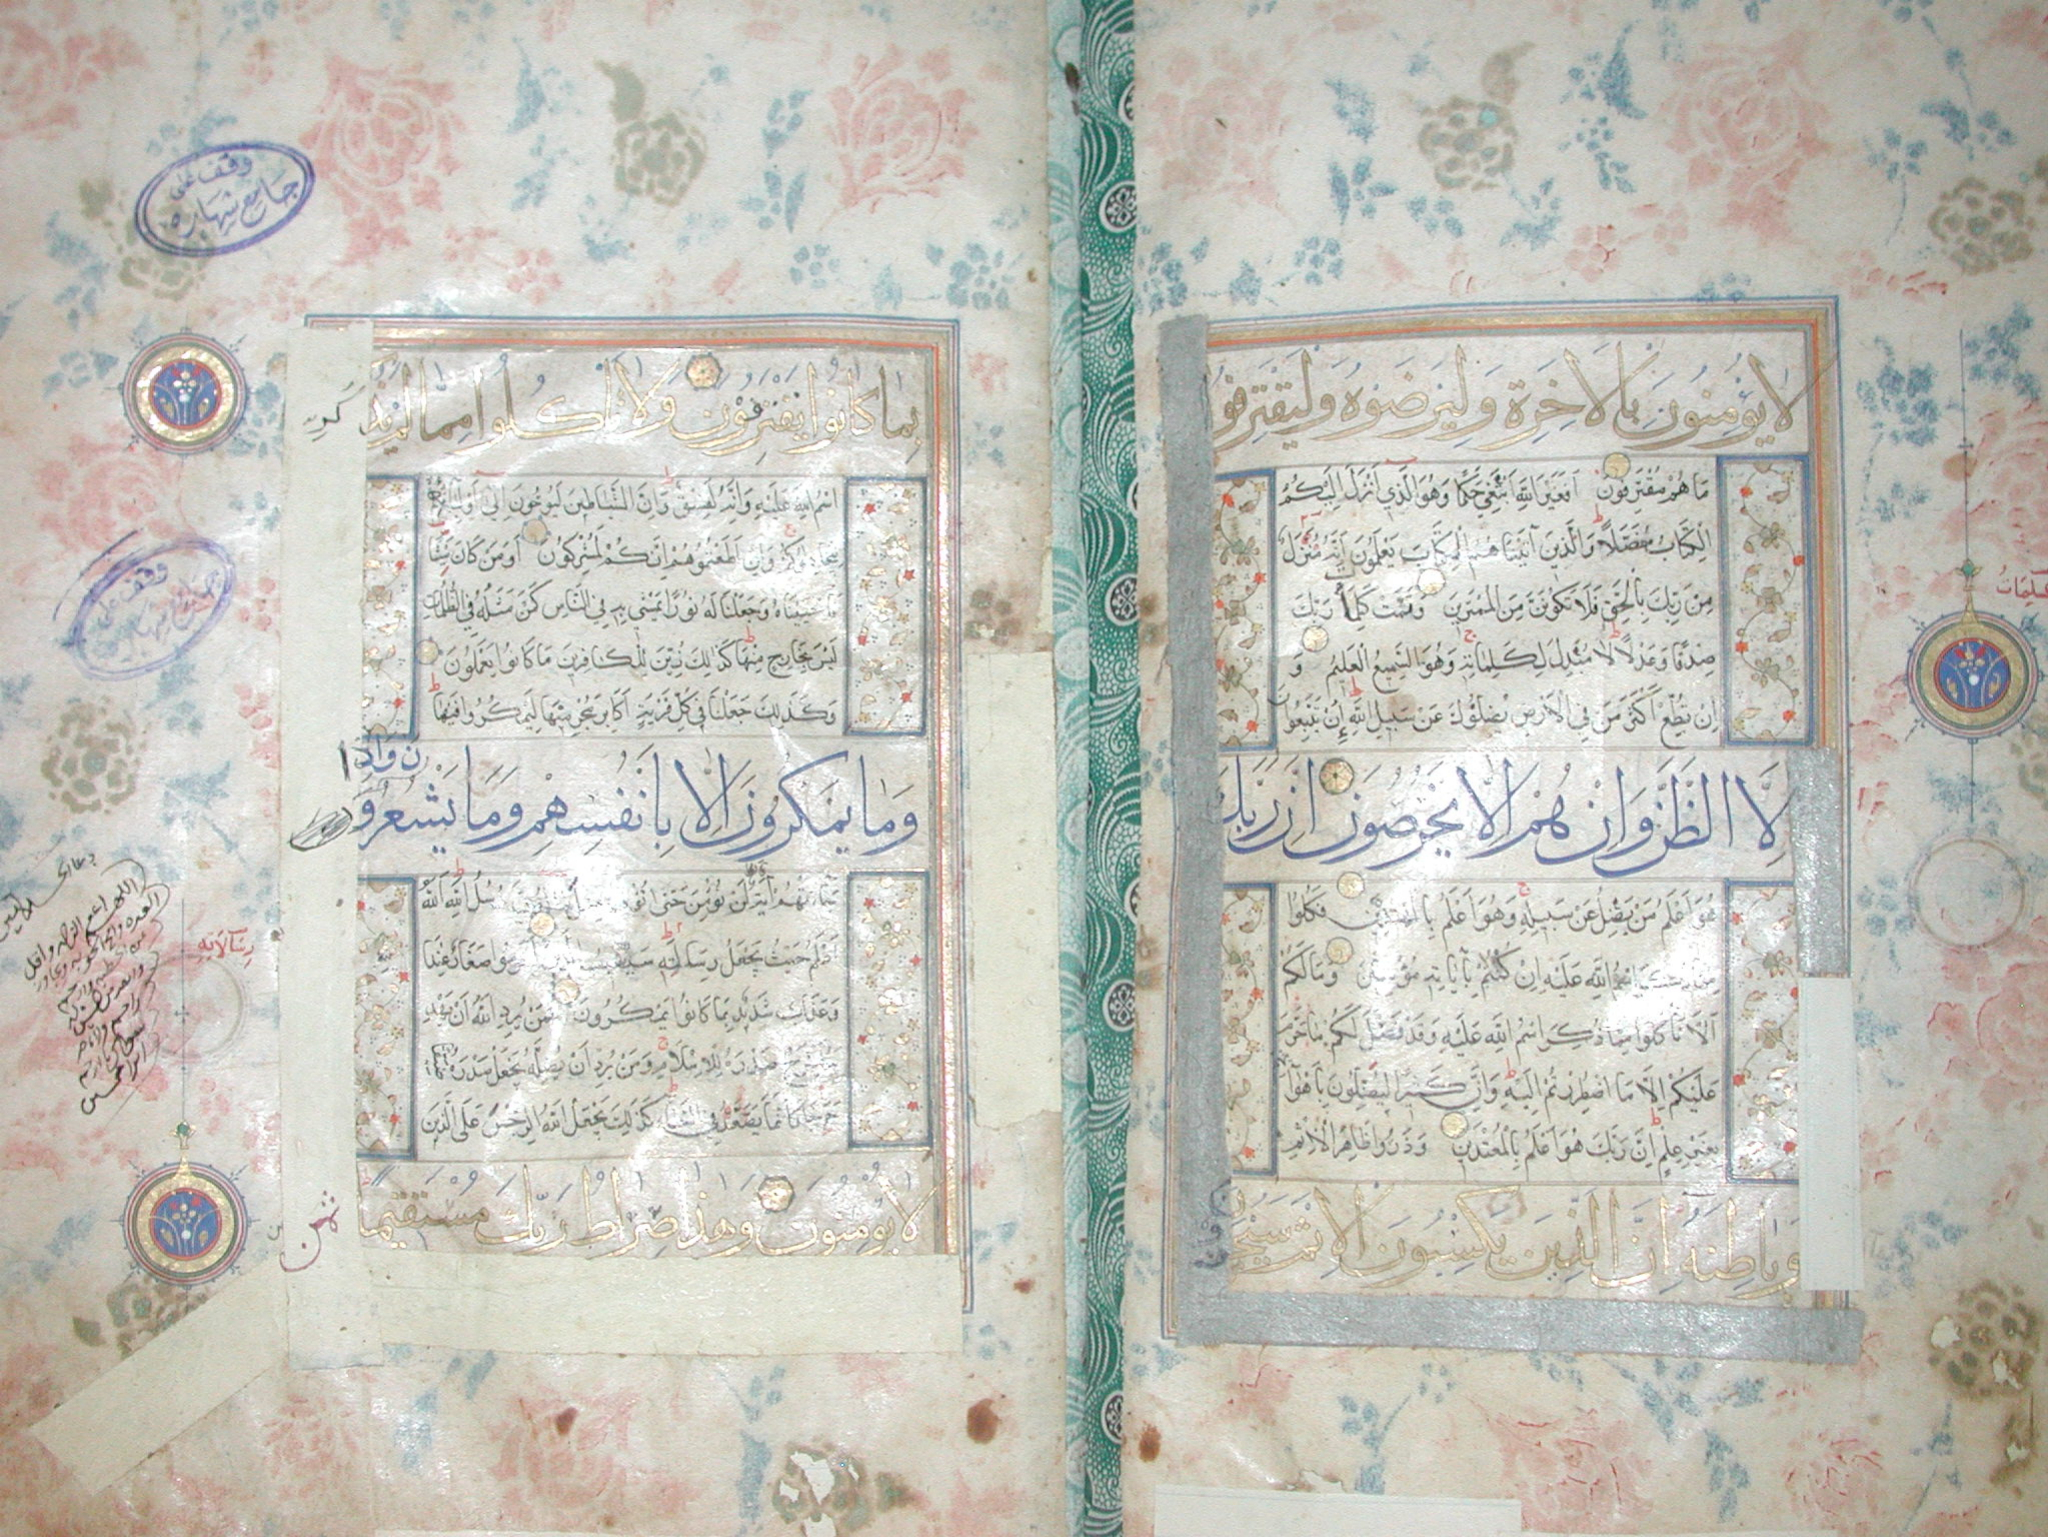 لا يؤمنون بالاخرة وليرضوه وليقترفوا
ما هم مقترفون افغير الله ابتغي حكما وهو الذي انزل اليكم
الكتاب مفصلا والذين آتيناهم الكتاب يعلمون انه منزل
من ربك بالحق فلا تكونن من الممترين وتمت كلمات ربك
صدقا وعدلا لا مبدل لكلماته وهو السميع العليم و
ان تطع اكثر من في الارض يضلوك عن سبيل الله ان يتبعون
الا الظن وان هم الا يخرصون ان ربك
هو اعلم من يضل عن سبيله وهو اعلم بالمهتدين فكلوا
اسم الله عليه ان كنتم بآياته مؤمنين وما لكم
الا تاكلوا مما ذكر اسم الله عليه وقد فصل لكم ما حرم
عليكم الا ما اضطررتم اليه وان كثيرا ليضلون باهوآ
بغير علم ان ربك هو اعلم بالمعتدين وذروا ظاهر الاثم
وباطنه ان الذين يكسبون الاثم سيجز
وقف على
جامع شهاره
بما كانوا يقترفون ولا تاكلوا مما لم يذكر
اسم الله عليه وانه لفسق وان الشياطين ليوحون الى اوليائهم
ليجادلوكم وان اطعتموهم انكم لمشركون او من كان ميتا
فاحييناه وجعلنا له نورا يمشي به في الناس كمن مثله في الظلمات
ليس بخارج منها كذلك زين للكافرين ما كانوا يعملون
وكذلك جعلنا في كل قرية اكابر مجرميها ليمكروا فيها
وما يمكرون الا بانفسهم وما يشعرون واذا
جاءتهم آية قالوا لن نؤمن حتى رسل الله الله
اعلم حيث يجعل رسالته سيصيب الذين اجرموا صغار عند
وعذاب شديد بما كانوا يمكرون فمن يرد الله ان يهد
يشرح صدره للاسلام ومن يرد ان يضله يجعل صدره
حرجا كانما يصعد في السماء كذلك يجعل الله الرجس على الذين
لا يؤمنون وهذا صراط ربك مستقيما
وقف على
رسالاته
ثمن